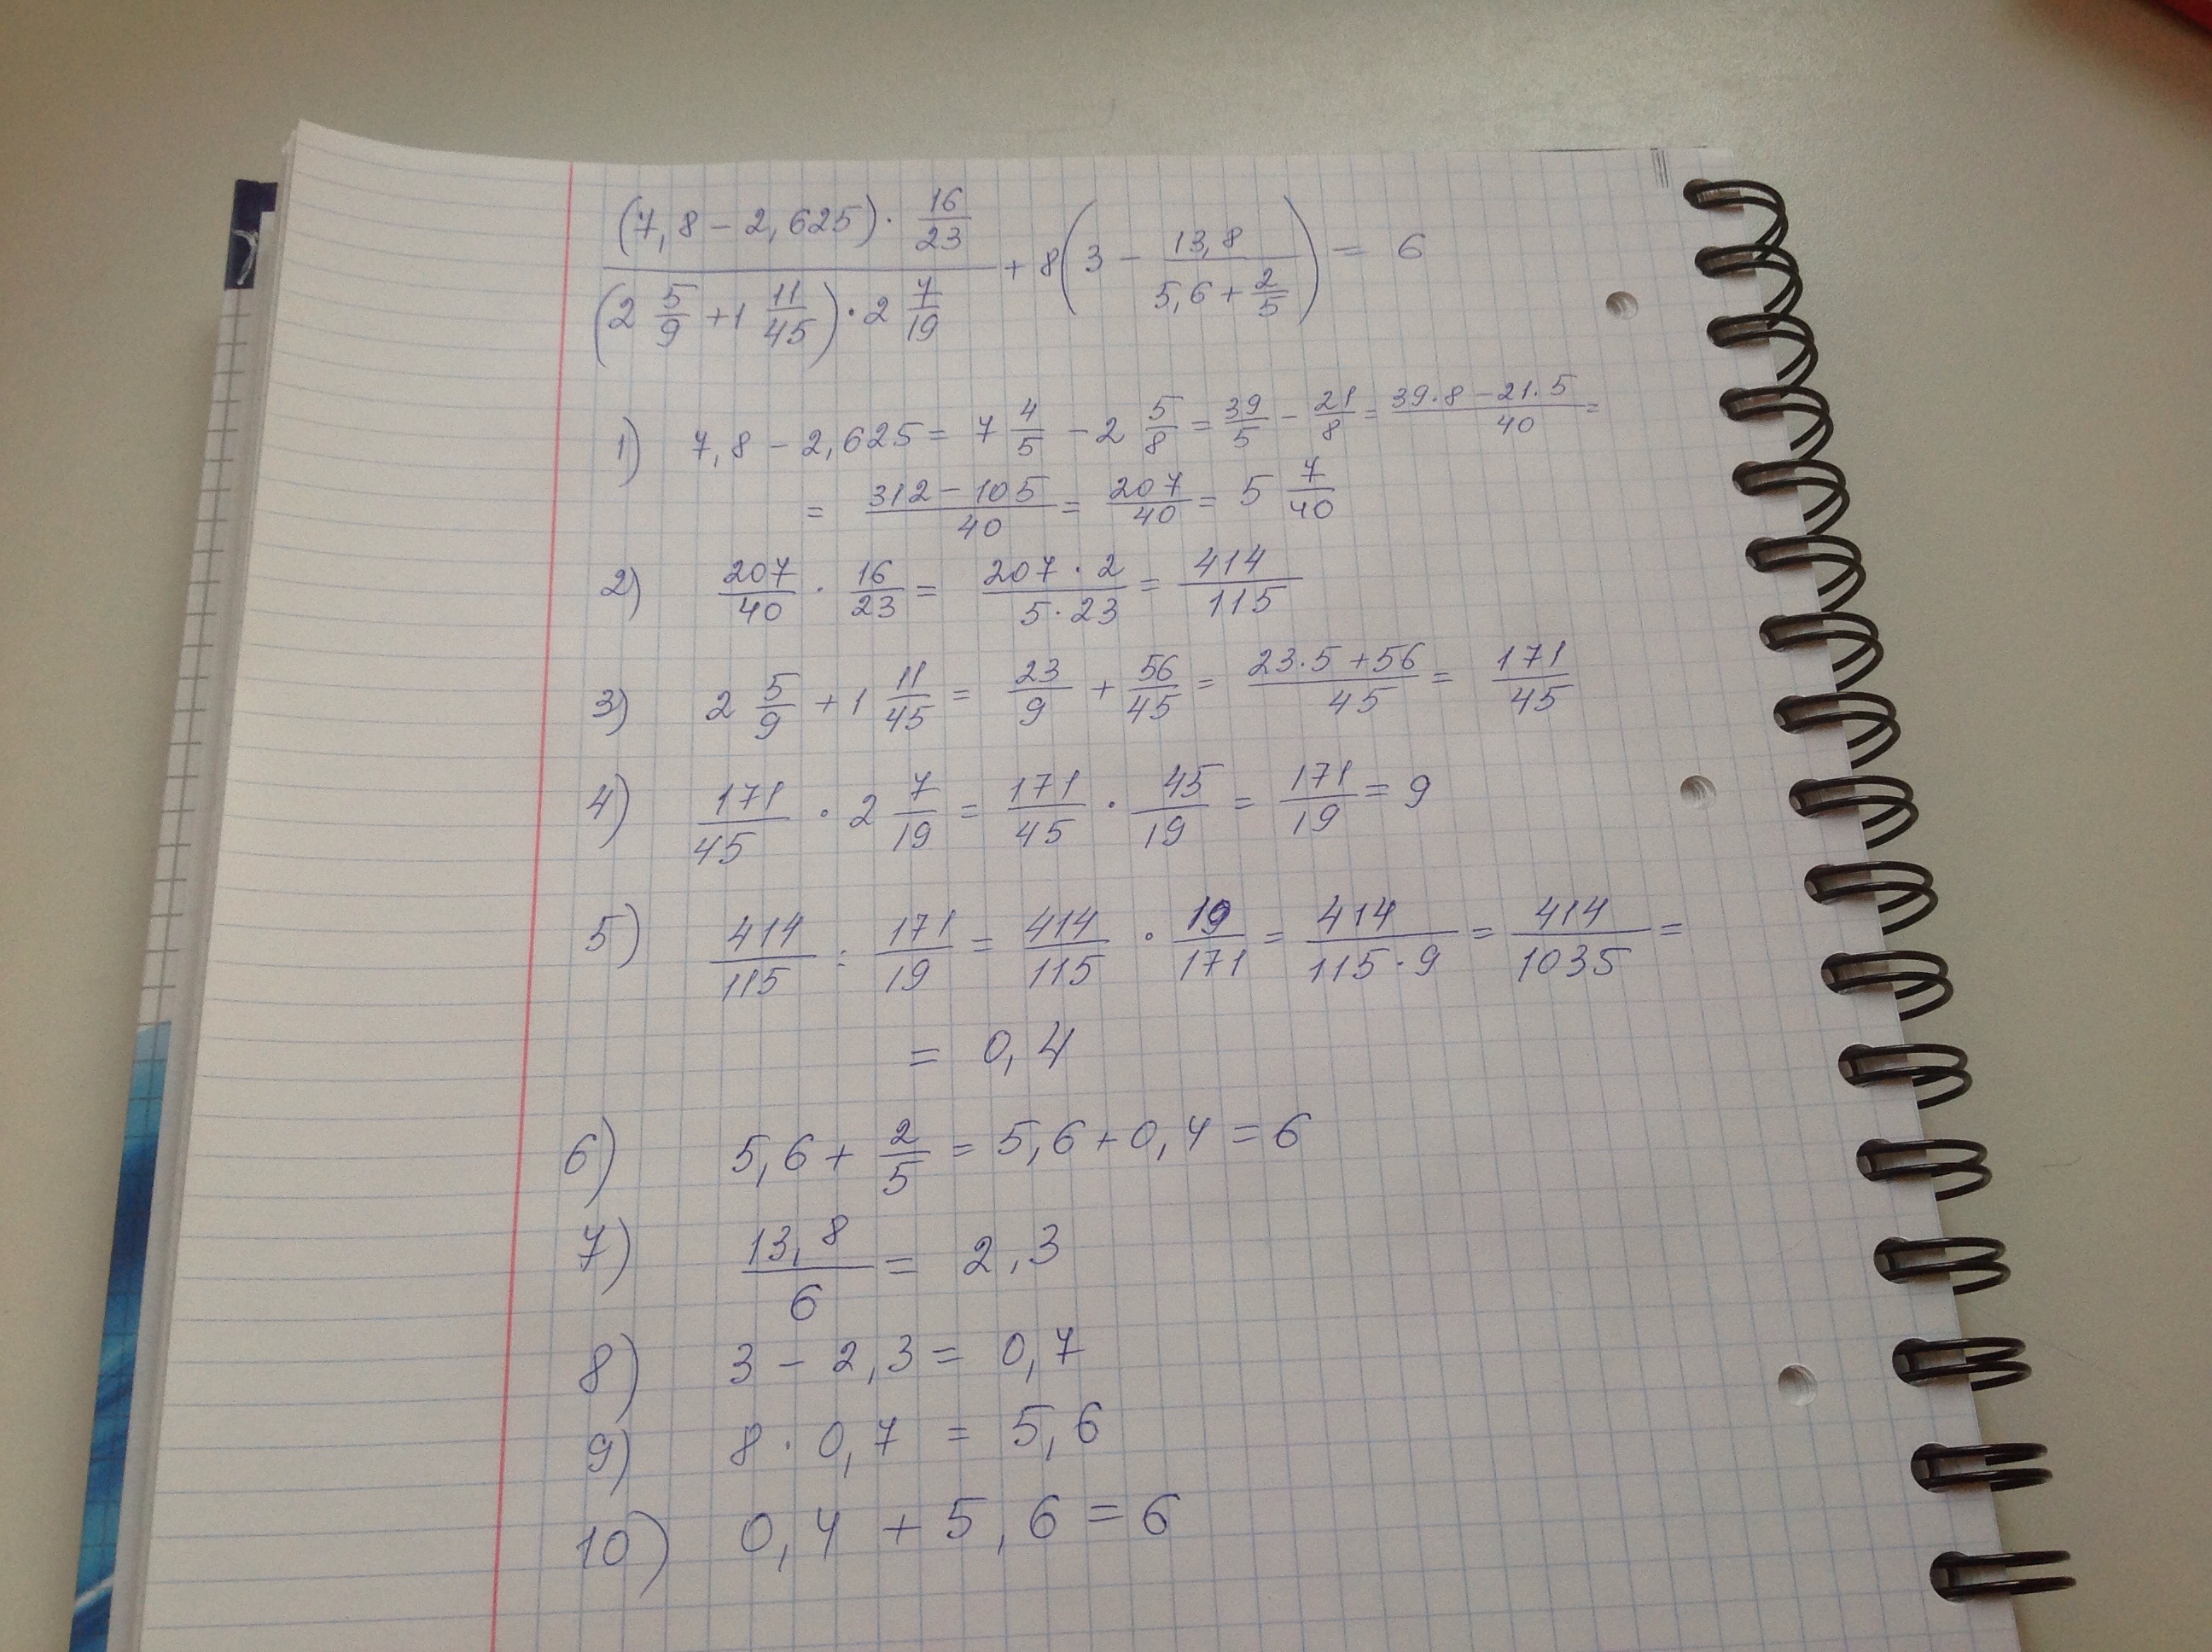 ((7,8 − 2,625) · 16/23) / ((2 5/9 + 1 11/45) · 2 7/19) + 8(3 − 13,8/(5,6 + 2/5)) = 6
1) 7,8 − 2,625 = 7 4/5 − 2 5/8 = 39/5 − 21/8 = (39·8 − 21·5)/40 =
= (312 − 105)/40 = 207/40 = 5 7/40
2) 207/40 · 16/23 = (207 · 2)/(5 · 23) = 414/115
3) 2 5/9 + 1 11/45 = 23/9 + 56/45 = (23·5 + 56)/45 = 171/45
4) 171/45 · 2 7/19 = 171/45 · 45/19 = 171/19 = 9
5) 414/115 : 171/19 = 414/115 · 19/171 = 414/(115·9) = 414/1035 =
= 0,4
6) 5,6 + 2/5 = 5,6 + 0,4 = 6
7) 13,8/6 = 2,3
8) 3 − 2,3 = 0,7
9) 8 · 0,7 = 5,6
10) 0,4 + 5,6 = 6